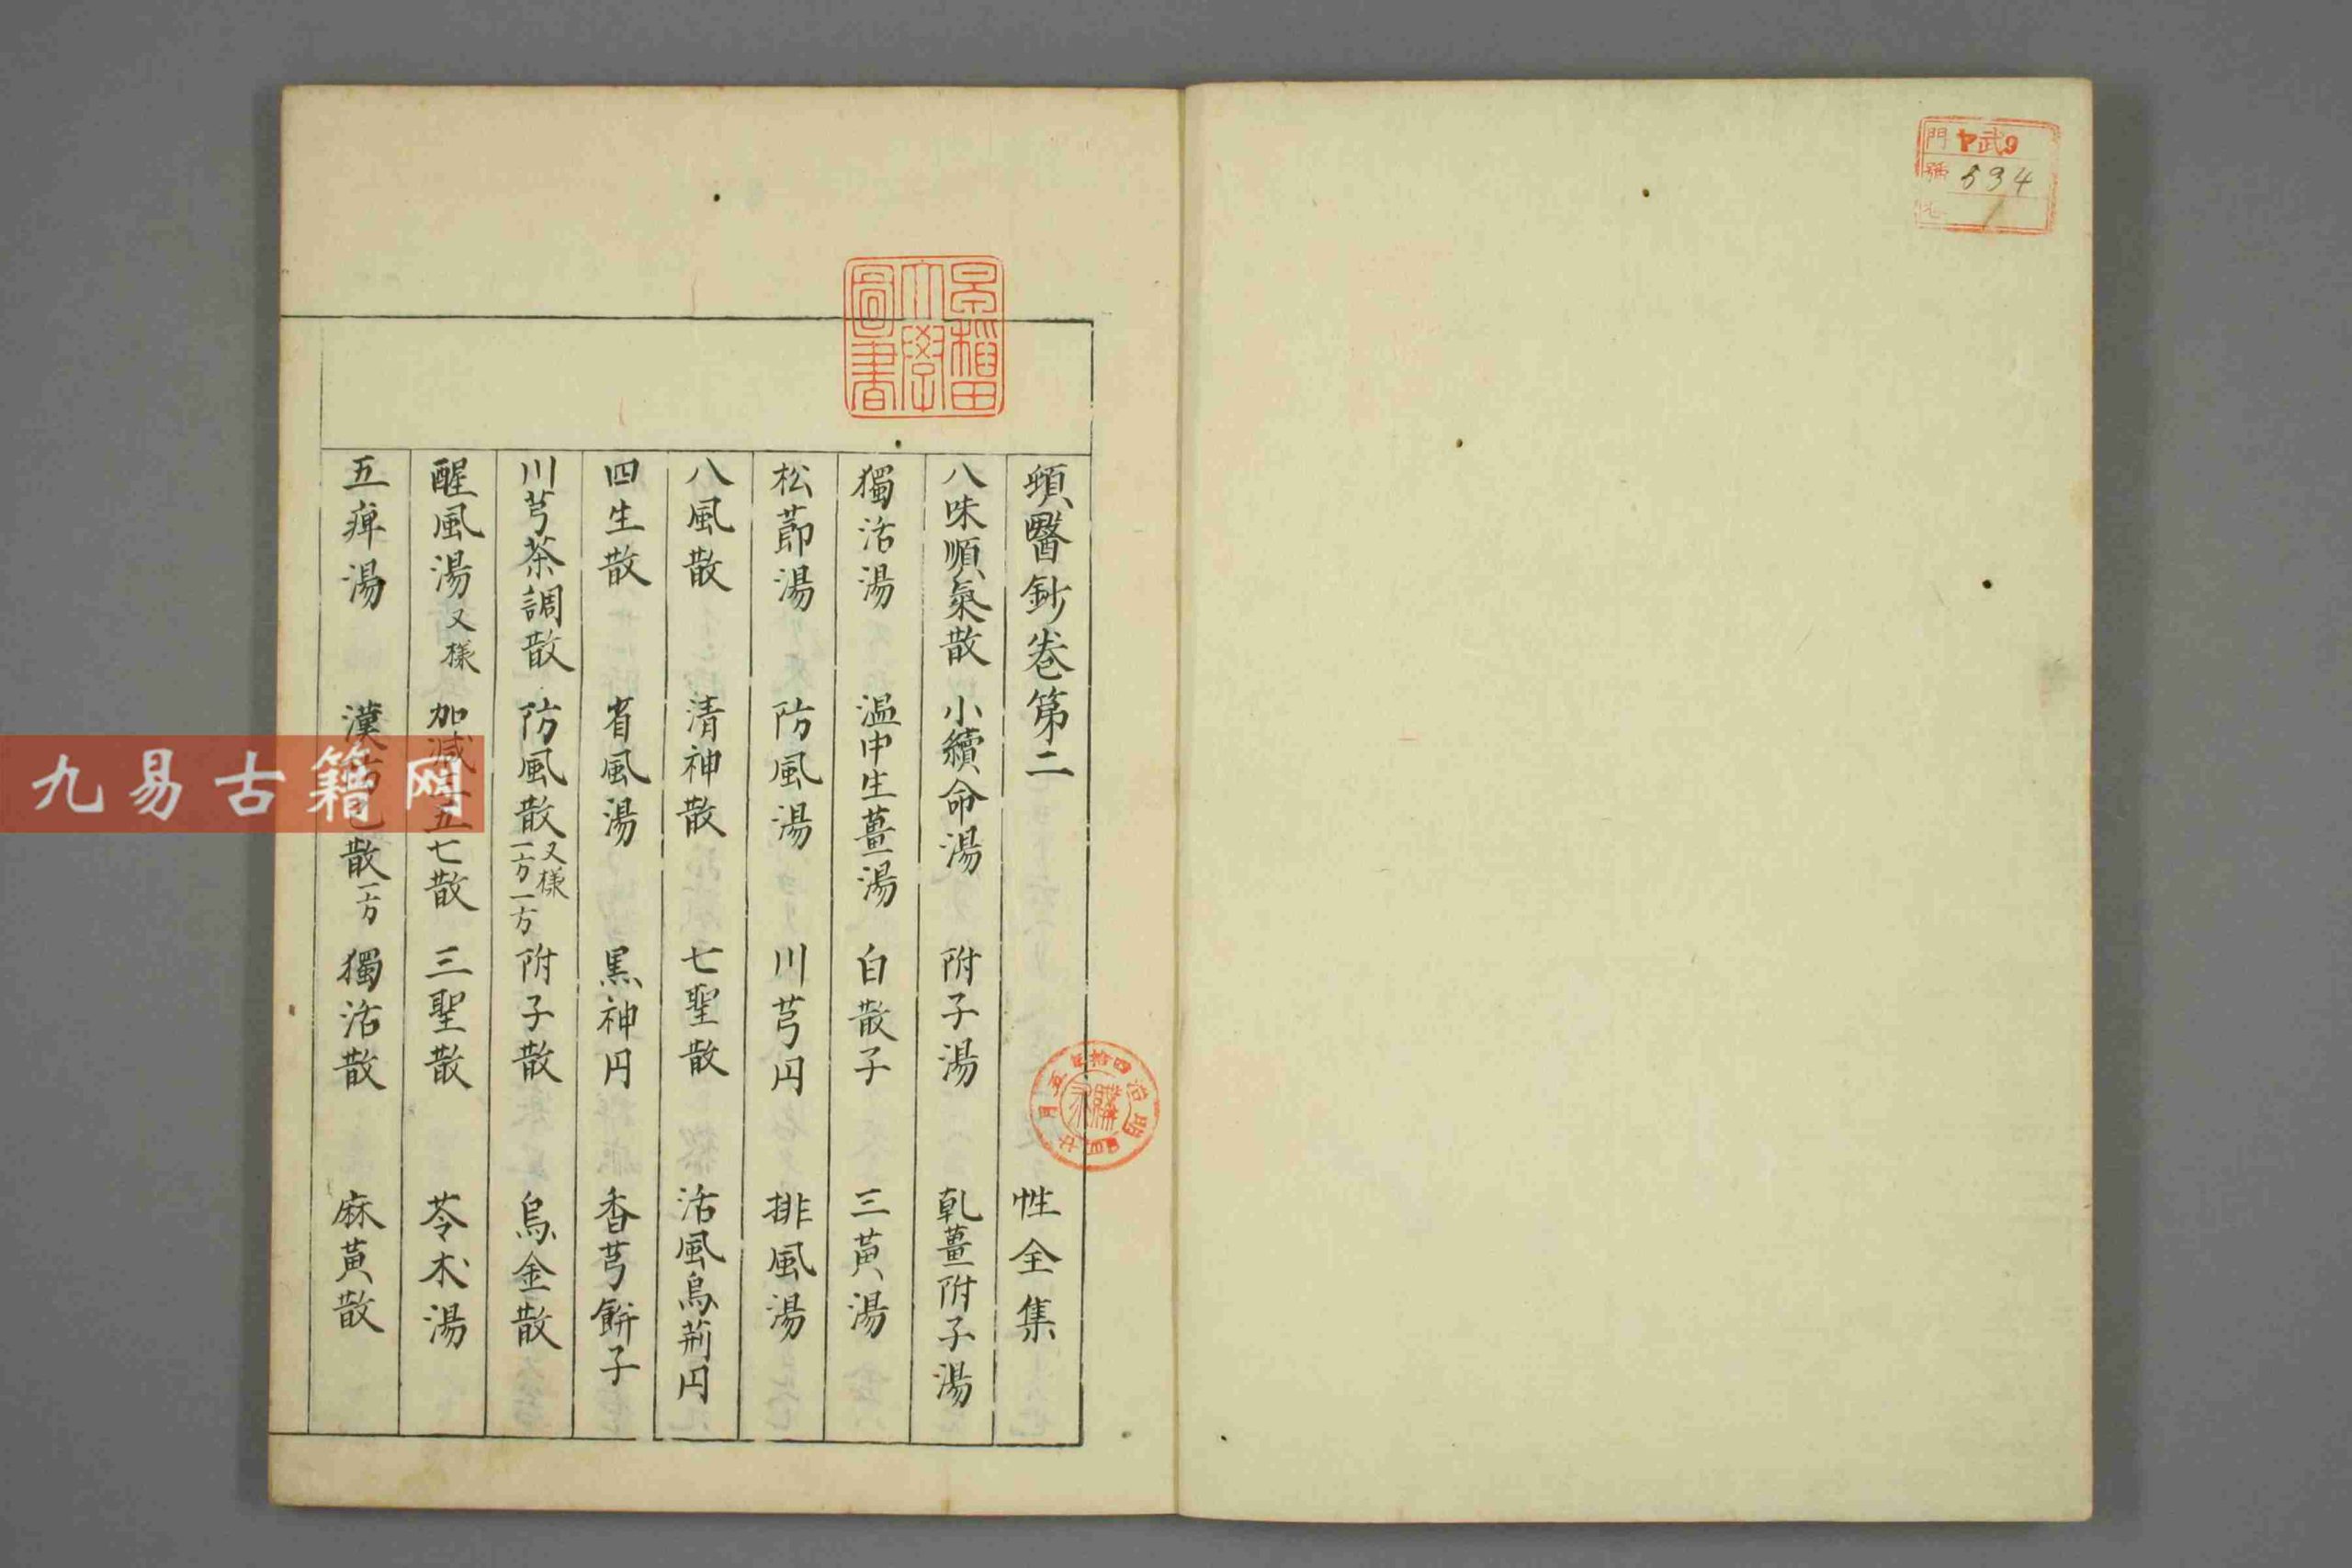 門 武9
號 534
1
早稻田大學圖書
頓醫鈔卷第二 性全集
八味順氣散 小續命湯 附子湯 乹薑附子湯
獨活湯 温中生薑湯 白散子 三黃湯
松節湯 防風湯 川芎円 排風湯
八風散 清神散 七聖散 活風烏荊円
四生散 省風湯 黒神円 香芎餅子
川芎茶調散 防風散又樣一方一方 附子散 烏金散
醒風湯又樣 加減三五七散 三聖散 苓术湯
五痺湯 漢防己散一方 獨活散 麻黃散
明治四拾五年五月廿
購求
九易古籍网